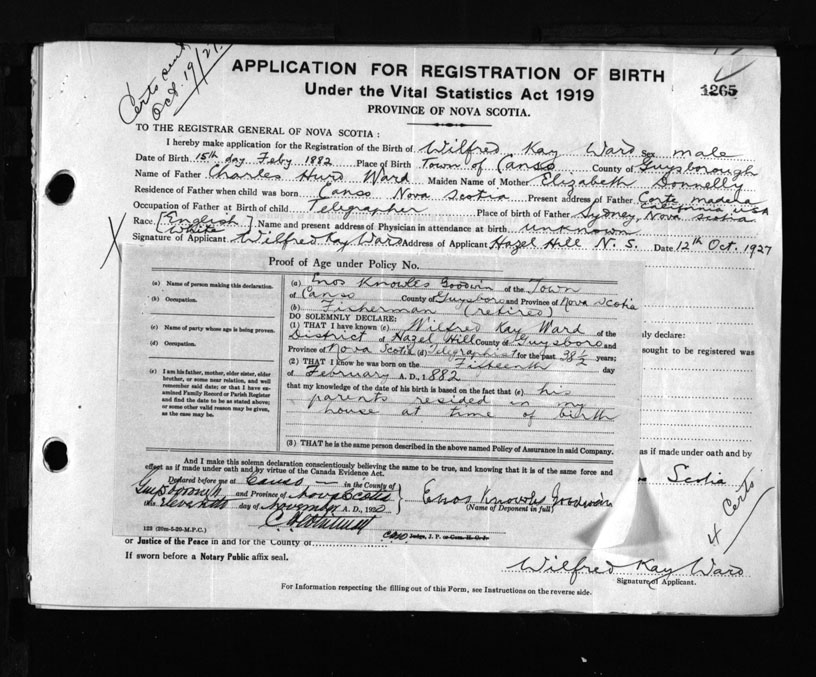 Certs sent
Oct. 19/27.
APPLICATION FOR REGISTRATION OF BIRTH
Under the Vital Statistics Act 1919
1265
PROVINCE OF NOVA SCOTIA.
TO THE REGISTRAR GENERAL OF NOVA SCOTIA :
I hereby make application for the Registration of the Birth of Wilfred Kay Ward Sex male
Date of Birth 15th day Feby 1882 Place of Birth Town of Canso County of Guysborough
Name of Father Charles Hurd Ward Maiden Name of Mother Elizabeth Donnelly
Residence of Father when child was born Canso Nova Scotia Present address of Father Corte madera
USA
Occupation of Father at Birth of child Telegrapher Place of birth of Father Sydney, Nova Scotia
Race [English White] Name and present address of Physician in attendance at birth unknown
Signature of Applicant Wilfred Kay Ward Address of Applicant Hazel Hill N. S. Date 12th Oct. 1927
Proof of Age under Policy No.
(a) Name of person making this declaration.
(b) Occupation.
(c) Name of party whose age is being proven.
(d) Occupation.
(e) I am his father, mother, elder sister, elder
brother, or some near relation, and well
remember said date; or that I have ex-
amined Family Record or Parish Register
and find the date to be as stated above;
or some other valid reason may be given,
as the case may be.
(a) Enos Knowles Goodwin of the Town
of Canso County of Guysboro and Province of Nova Scotia
(b) Fisherman (retired)
DO SOLEMNLY DECLARE:
(1) THAT I have known (c) Wilfred Kay Ward of the
District of Hazel Hill County of Guysboro and
Province of Nova Scotia (d) Telegraphist for the past 38½ years;
(2) THAT I know he was born on the Fifteenth day
of February A. D., 1882
that my knowledge of the date of his birth is based on the fact that (e) his
parents resided in my
house at time of birth
(3) THAT he is the same person described in the above named Policy of Assurance in said Company.
And I make this solemn declaration conscientiously believing the same to be true, and knowing that it is of the same force and
effect as if made under oath and by virtue of the Canada Evidence Act.
Declared before me at Canso in the County of
Guysborough and Province of Nova Scotia
this day of November A. D., 1920
Enos Knowles Goodwin
(Name of Deponent in full)
Judge, J. P. or Com. H. C. J.
123 (20m-5-20-M.P.C.)
ly declare:
sought to be registered was
as if made under oath and by
Scotia
4 Certs
or Justice of the Peace in and for the County of
If sworn before a Notary Public affix seal.
Wilfred Kay Ward
Signature of Applicant.
For Information respecting the filling out of this Form, see Instructions on the reverse side.